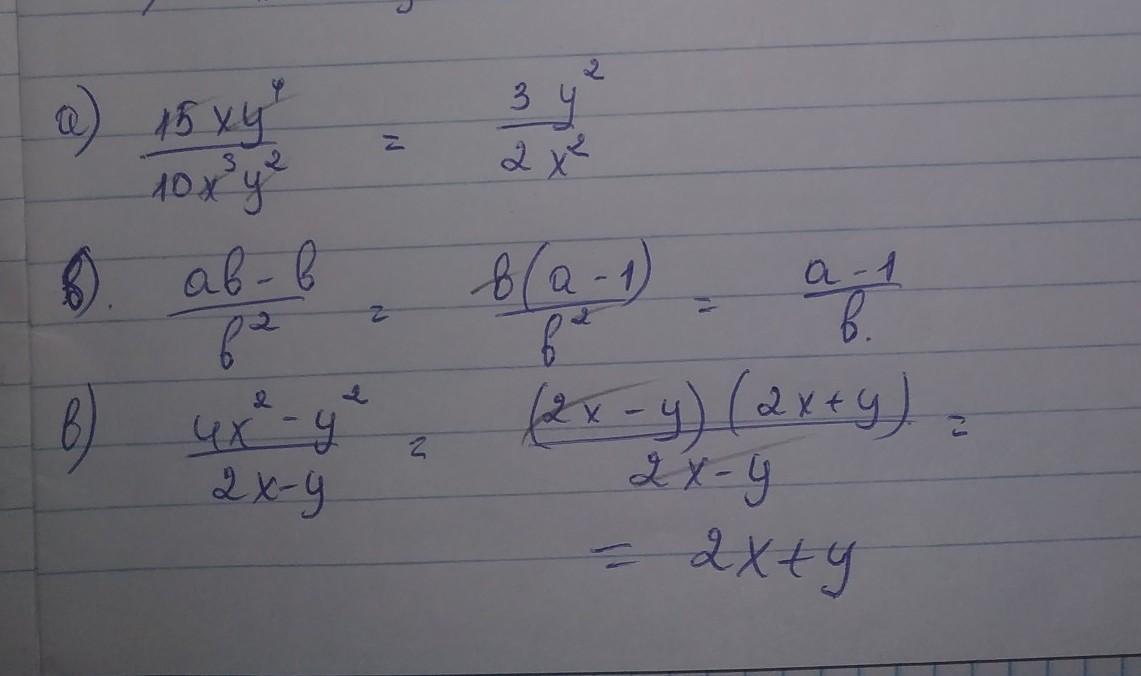 а) 15xy⁴/10x³y² = 3y²/2x²
б). ab-b/b² = b(a-1)/b² = a-1/b.
в) 4x²-y²/2x-y = (2x-y)(2x+y)/2x-y =
= 2x+y